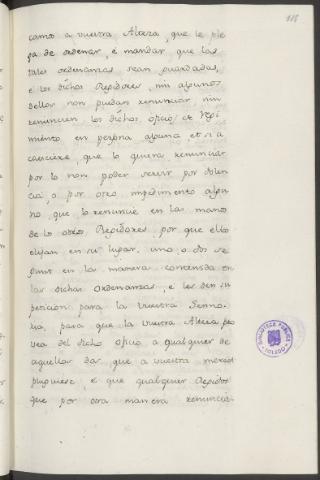 118
como a vuestra Alteza, que le ple
ga de ordenar, é mandar, que las
tales ordenanzas sean guardadas,
e los dichos Regidores, nin algunos
dellos non puedan renunciar nin
renuncien los dichos oficios de regi
miento en persona alguna, et si a
caesciere, que lo quiera renunciar
por lo non poder servir por dolen
cia, o por otro impedimento algu
no, que lo renuncie en las manos
de los otros Regidores, por que ellos
elijan en su lugar, uno, o dos se
gunt en la manera contenida en
las dichas Ordenanzas, e les den su
peticion para la Vuestra Senno
ria, para que la vuestra Alteza pro
vea del dicho oficio a qualquier de
aquellos dos que a vuestra merced
pluguiese, e que qualquier Regidor
que por otra manera renuncia
BIBLIOTECA PUBLICA
TOLEDO